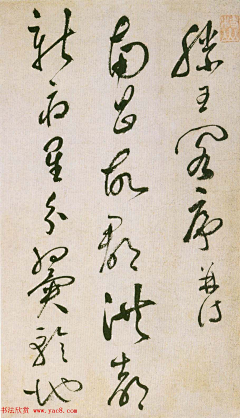 滕王阁序并诗
南昌故郡洪都
新府星分翼轸地
书法欣赏 www.yac8.com